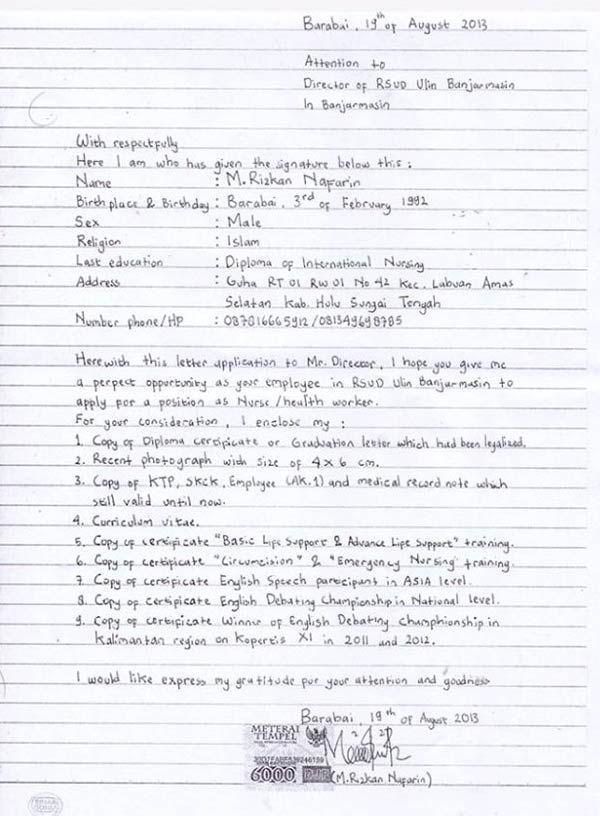 Barabai, 19th of August 2013
Attention to
Director of RSUD Ulin Banjarmasin
In Banjarmasin
With respectfully
Here I am who has given the signature below this :
Name : M. Rizkan Nafarin
Birthplace & Birthday : Barabai, 3rd of February 1992
Sex : Male
Religion : Islam
Last education : Diploma of International Nursing
Address : Guha RT 01 RW 01 No 42 Kec. Labuan Amas
Selatan Kab. Hulu Sungai Tengah
Number phone/HP : 087816665912 /081349698785
Herewith this letter application to Mr. Director, I hope you give me
a perfect opportunity as your employee in RSUD Ulin Banjarmasin to
apply for a position as Nurse /health worker.
For your consideration, I enclose my :
1. Copy of Diploma certificate or Graduation letter which had been legalized.
2. Recent photograph with size of 4x6 cm.
3. Copy of KTP, SKCK, Employee (AK.1) and medical record note which
still valid until now.
4. Curriculum vitae.
5. Copy of certificate "Basic Life Support & Advance Life Support" training.
6. Copy of certificate "Circumcision" & "Emergency Nursing" training.
7. Copy of certificate English Speech participant in ASIA level.
8. Copy of certificate English Debating Championship in National level.
9. Copy of certificate Winner of English Debating Champhionship in
Kalimantan region on Kopertis XI in 2011 and 2012.
I would like express my gratitude for your attention and goodness
Barabai, 19th of August 2013
METERAI
TEMPEL
6000 DJP
(M. Rizkan Nafarin)